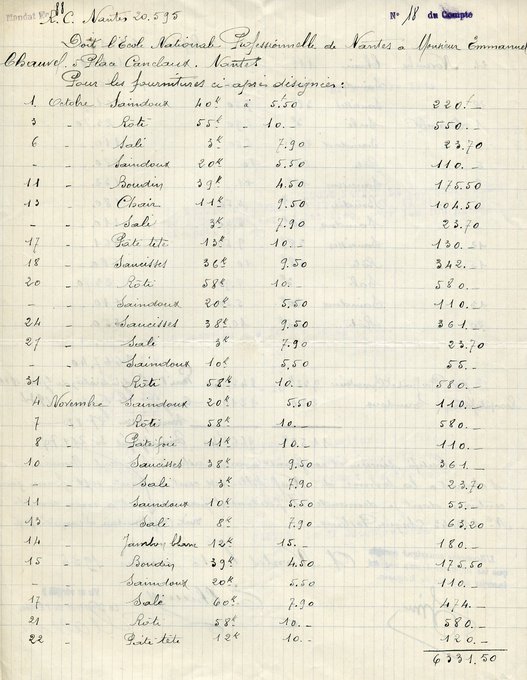 Mandat N° 88
R. C. Nantes 20.595
N° 18 du Compte
Doit l'Ecole National Professionnelle de Nantes a Monsieur Emmanuel
Chauvel, Place Canclaux. Nantes
Pour les fournitures ci-après désignées:
1 Octobre Saindoux 40k à 5.50 220.-
3 - Rôti 55k - 10.- 550.-
6 - Salé 3k - 7.90 23.70
- Saindoux 20k - 5.50 110.-
11 - Boudin 39k - 4.50 175.50
13 - Chair 11k - 9.50 104.50
- Salé 3k - 7.90 23.70
17 - Pâté tête 13k - 10.- 130.-
18 - Saucisses 36k - 9.50 342.-
20 - Rôti 58k - 10.- 580.-
- Saindoux 20k - 5.50 110.-
24 - Saucisses 38k - 9.50 361.-
27 - Salé 3k - 7.90 23.70
- Saindoux 10k - 5.50 55.-
31 - Rôti 58k - 10.- 580.-
4 Novembre Saindoux 20k 5.50 110.-
7 - Rôti 58k 10.- 580.-
8 - Pâté foie 11k 10.- 110.-
10 - Saucisses 38k 9.50 361.-
- Salé 3k 7.90 23.70
11 - Saindoux 10k 5.50 55.-
13 - Salé 8k 7.90 63.20
14 - Jambon blanc 12k 15.- 180.-
15 - Boudin 39k 4.50 175.50
- Saindoux 20k 5.50 110.-
17 - Salé 60k 7.90 474.-
21 - Rôti 58k 10.- 580.-
22 - Pâté tête 12k 10.- 120.-
6331.50